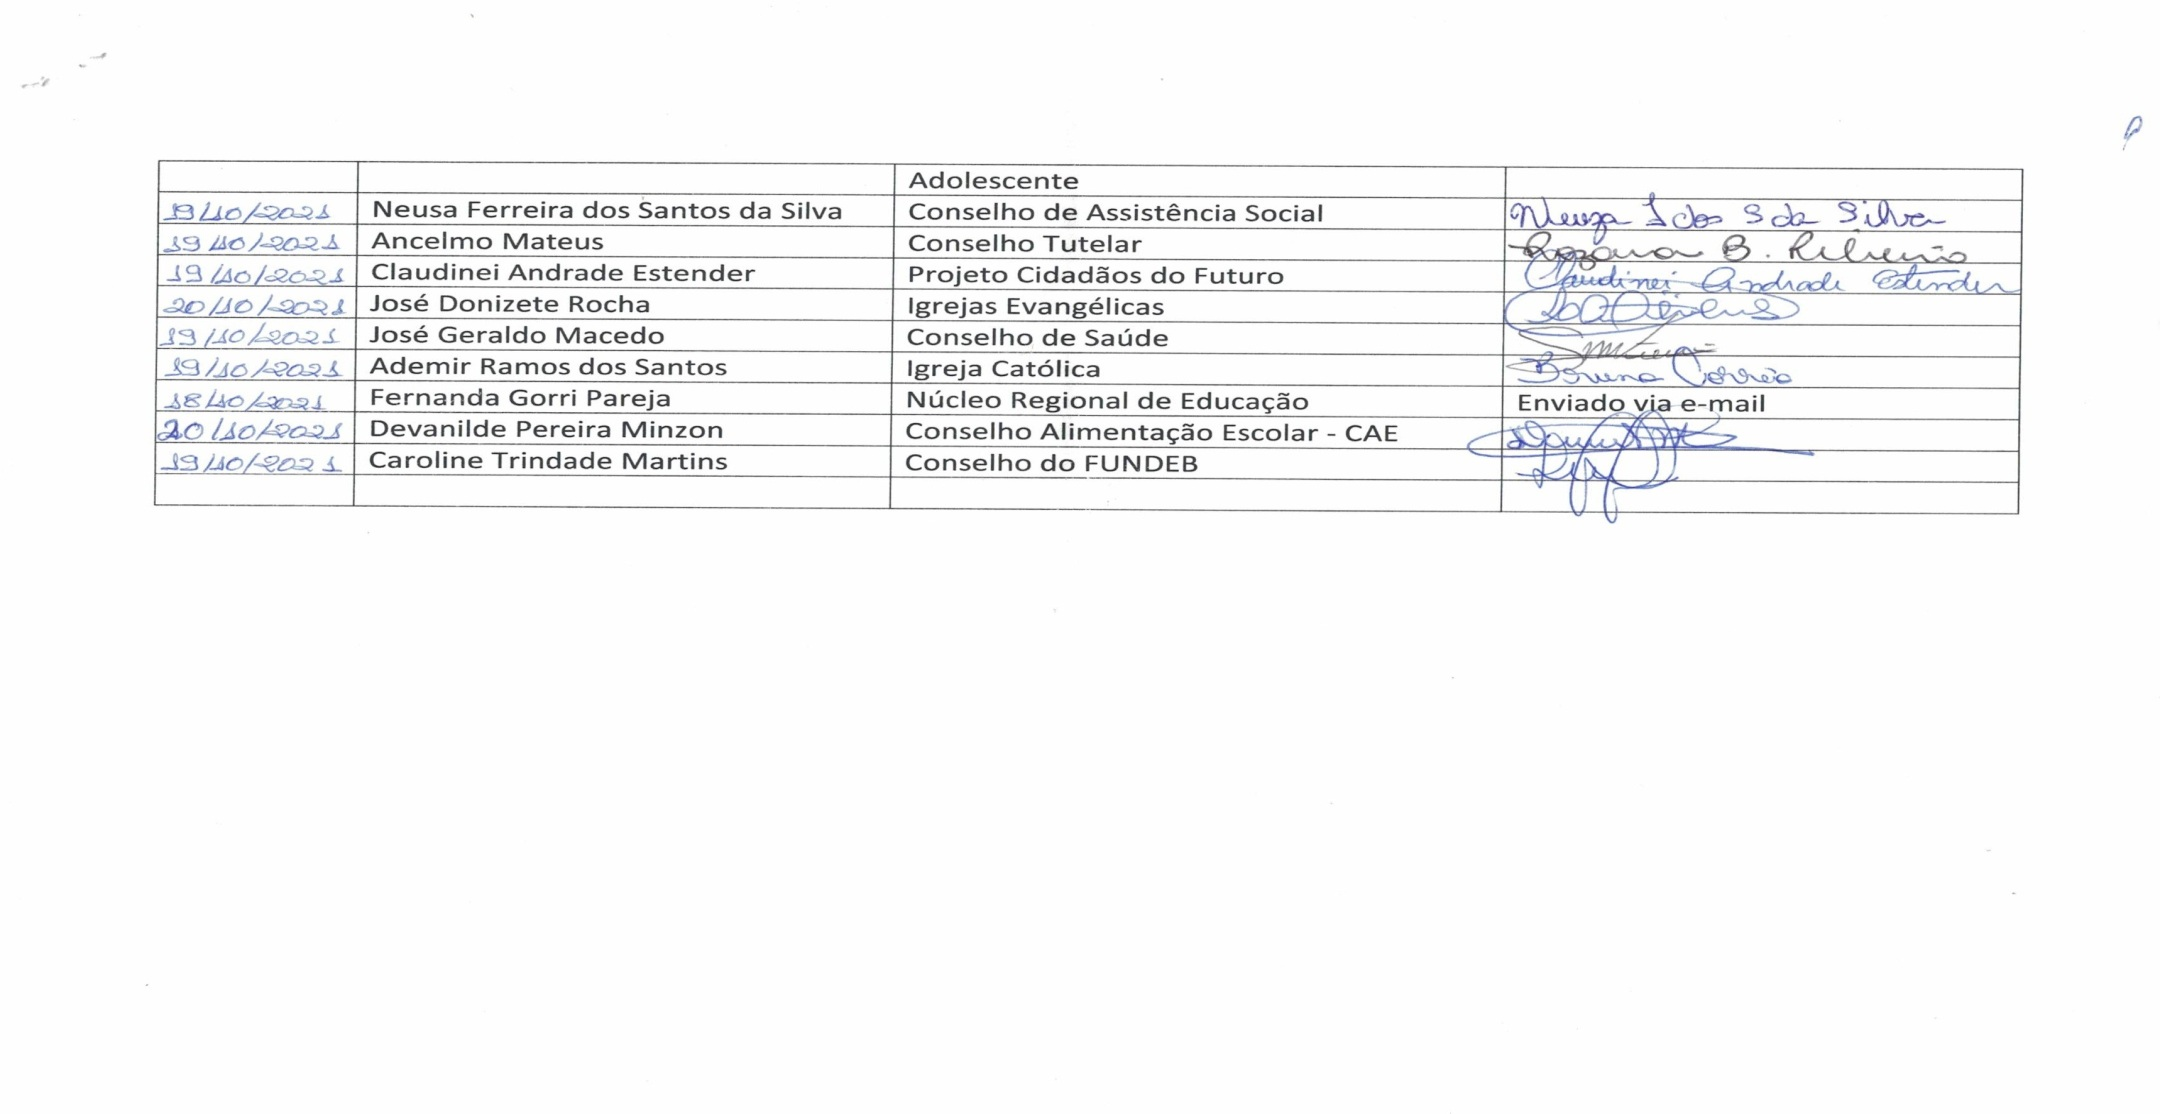 Adolescente
19/10/2021 Neusa Ferreira dos Santos da Silva Conselho de Assistência Social Neuza F dos S da Silva
19/10/2021 Ancelmo Mateus Conselho Tutelar Rozana B. Ribeiro
19/10/2021 Claudinei Andrade Estender Projeto Cidadãos do Futuro Claudinei Andrade Estender
20/10/2021 José Donizete Rocha Igrejas Evangélicas
19/10/2021 José Geraldo Macedo Conselho de Saúde
19/10/2021 Ademir Ramos dos Santos Igreja Católica Bruna Corrêa
18/10/2021 Fernanda Gorri Pareja Núcleo Regional de Educação Enviado via e-mail
20/10/2021 Devanilde Pereira Minzon Conselho Alimentação Escolar - CAE
19/10/2021 Caroline Trindade Martins Conselho do FUNDEB